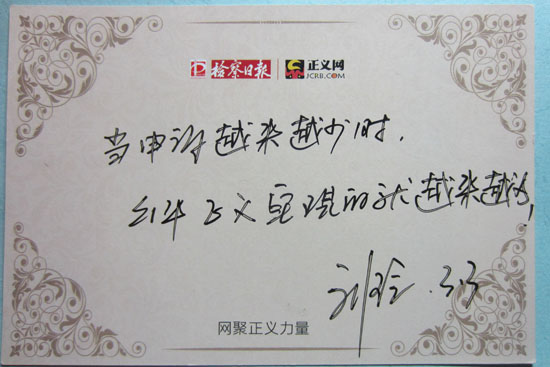 检察日报 正义网
JCRB.COM
当申诉越来越少时,
公平正义实现的就越来越
网聚正义力量